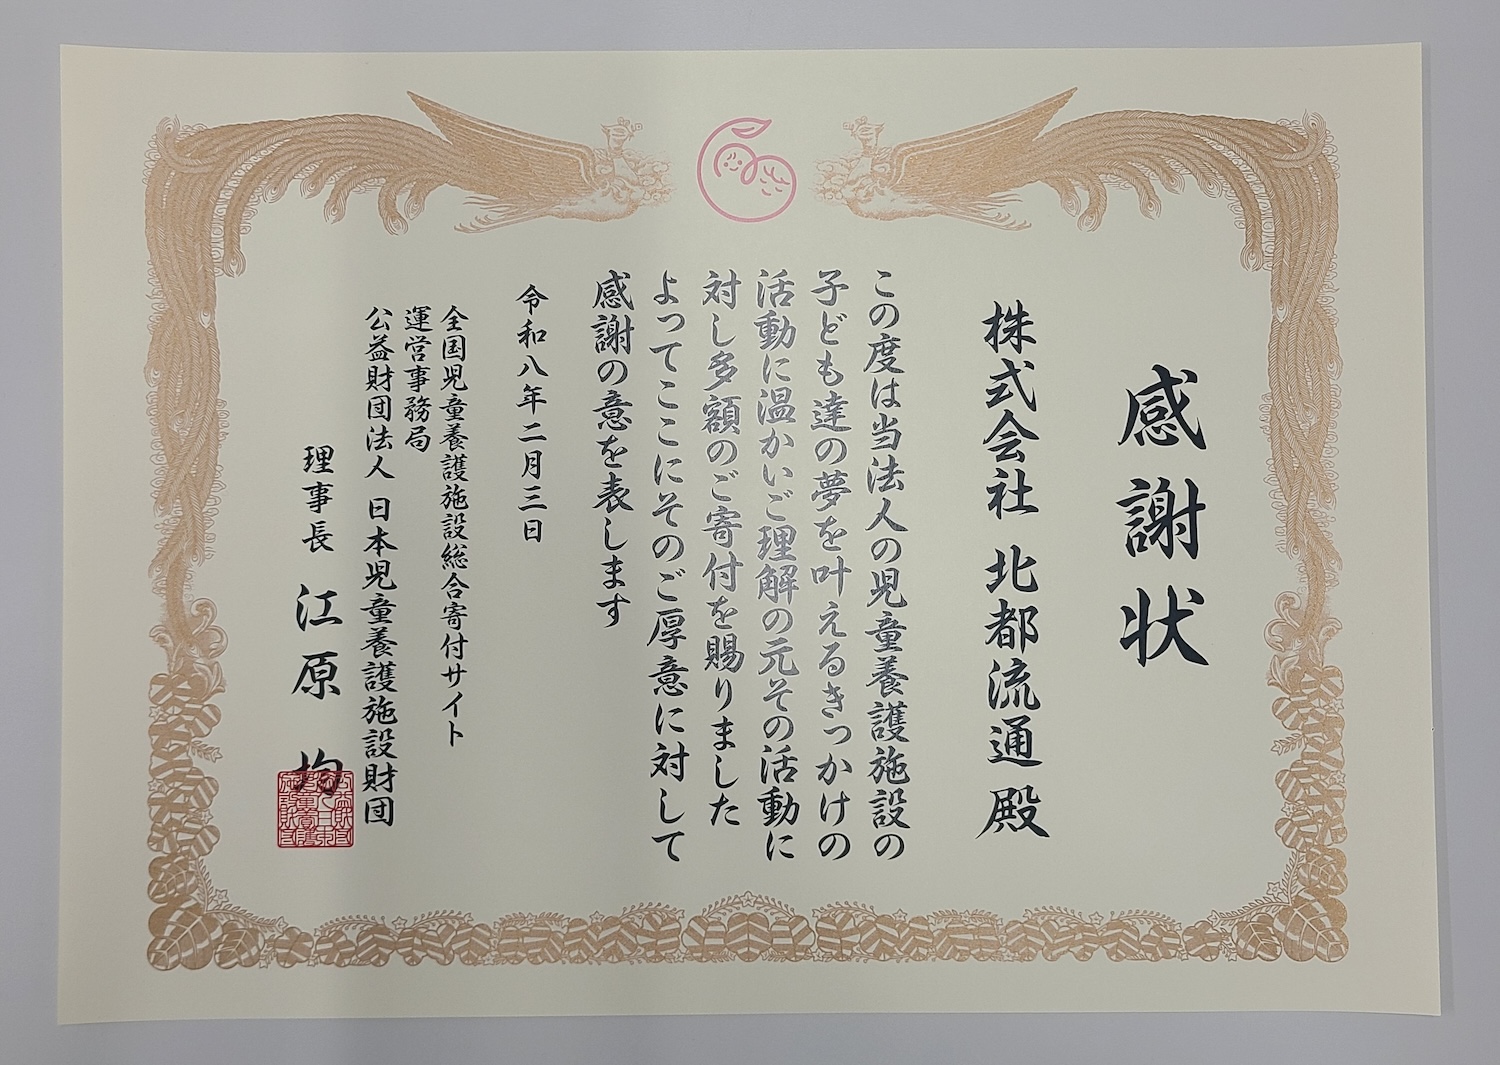 感謝状
株式会社 北都流通 殿
この度は当法人の児童養護施設の
子ども達の夢を叶えるきっかけの
活動に温かいご理解の元その活動に
対し多額のご寄付を賜りました
よってここにそのご厚意に対して
感謝の意を表します
令和八年二月三日
全国児童養護施設総合寄付サイト
運営事務局
公益財団法人 日本児童養護施設財団
理事長 江原 均